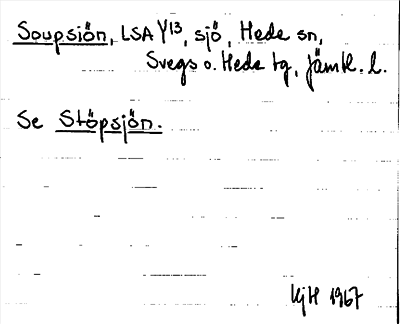 Soupsjön, LSA Y13, sjö, Hede sn,
Svegs o. Hede tg, Jämtl. l.
Se Stöpsjön.
KjH 1967